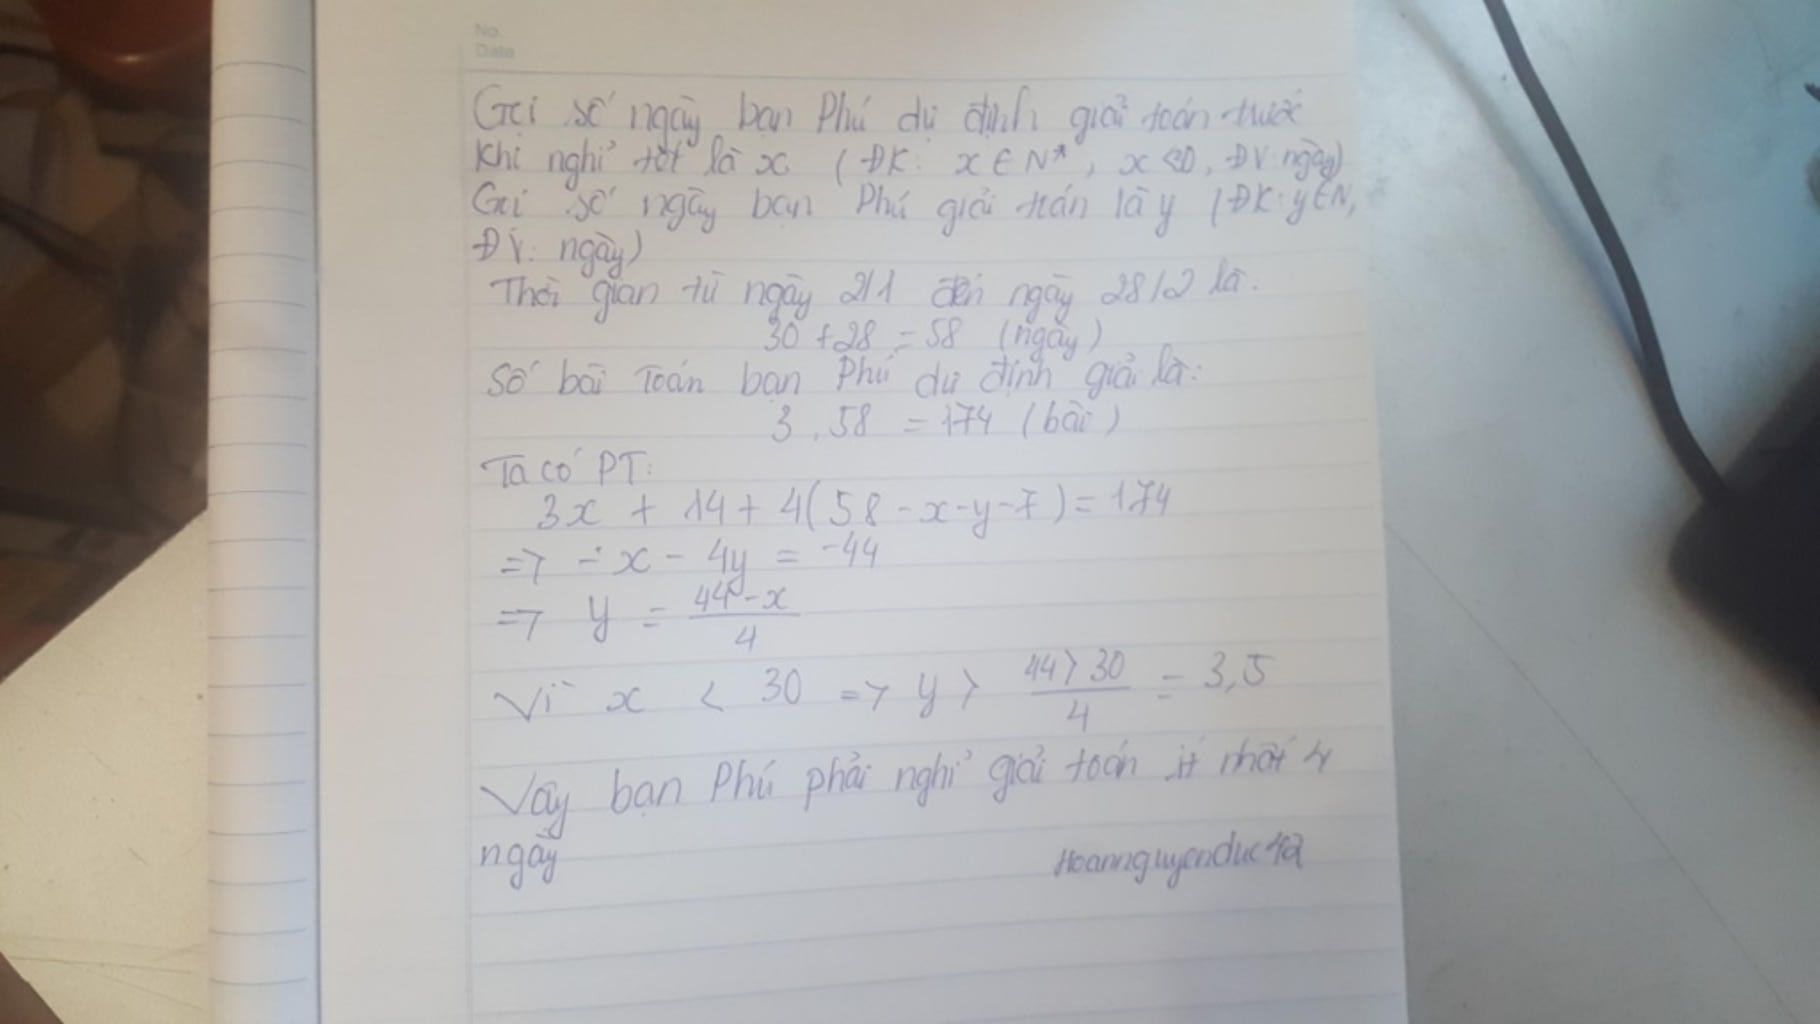 No.
Date
Gọi số ngày bạn Phú dự định giải toán trước
khi nghỉ tết là x (ĐK: x ∈ N*, x <30, ĐV: ngày)
Gọi số ngày bạn Phú giải toán là y (ĐK: y ∈ N,
ĐV: ngày)
Thời gian từ ngày 2/1 đến ngày 28/2 là.
30 + 28 = 58 (ngày)
Số bài Toán bạn Phú dự định giải là:
3 . 58 = 174 (bài)
Ta có PT:
3x + 14 + 4(58 - x - y - 7) = 174
=> - x - 4y = -44
=> y = \frac{44 - x}{4}
Vì x < 30 => y > \frac{44 > 30}{4} = 3,5
Vậy bạn Phú phải nghỉ giải toán ít nhất 4
ngày